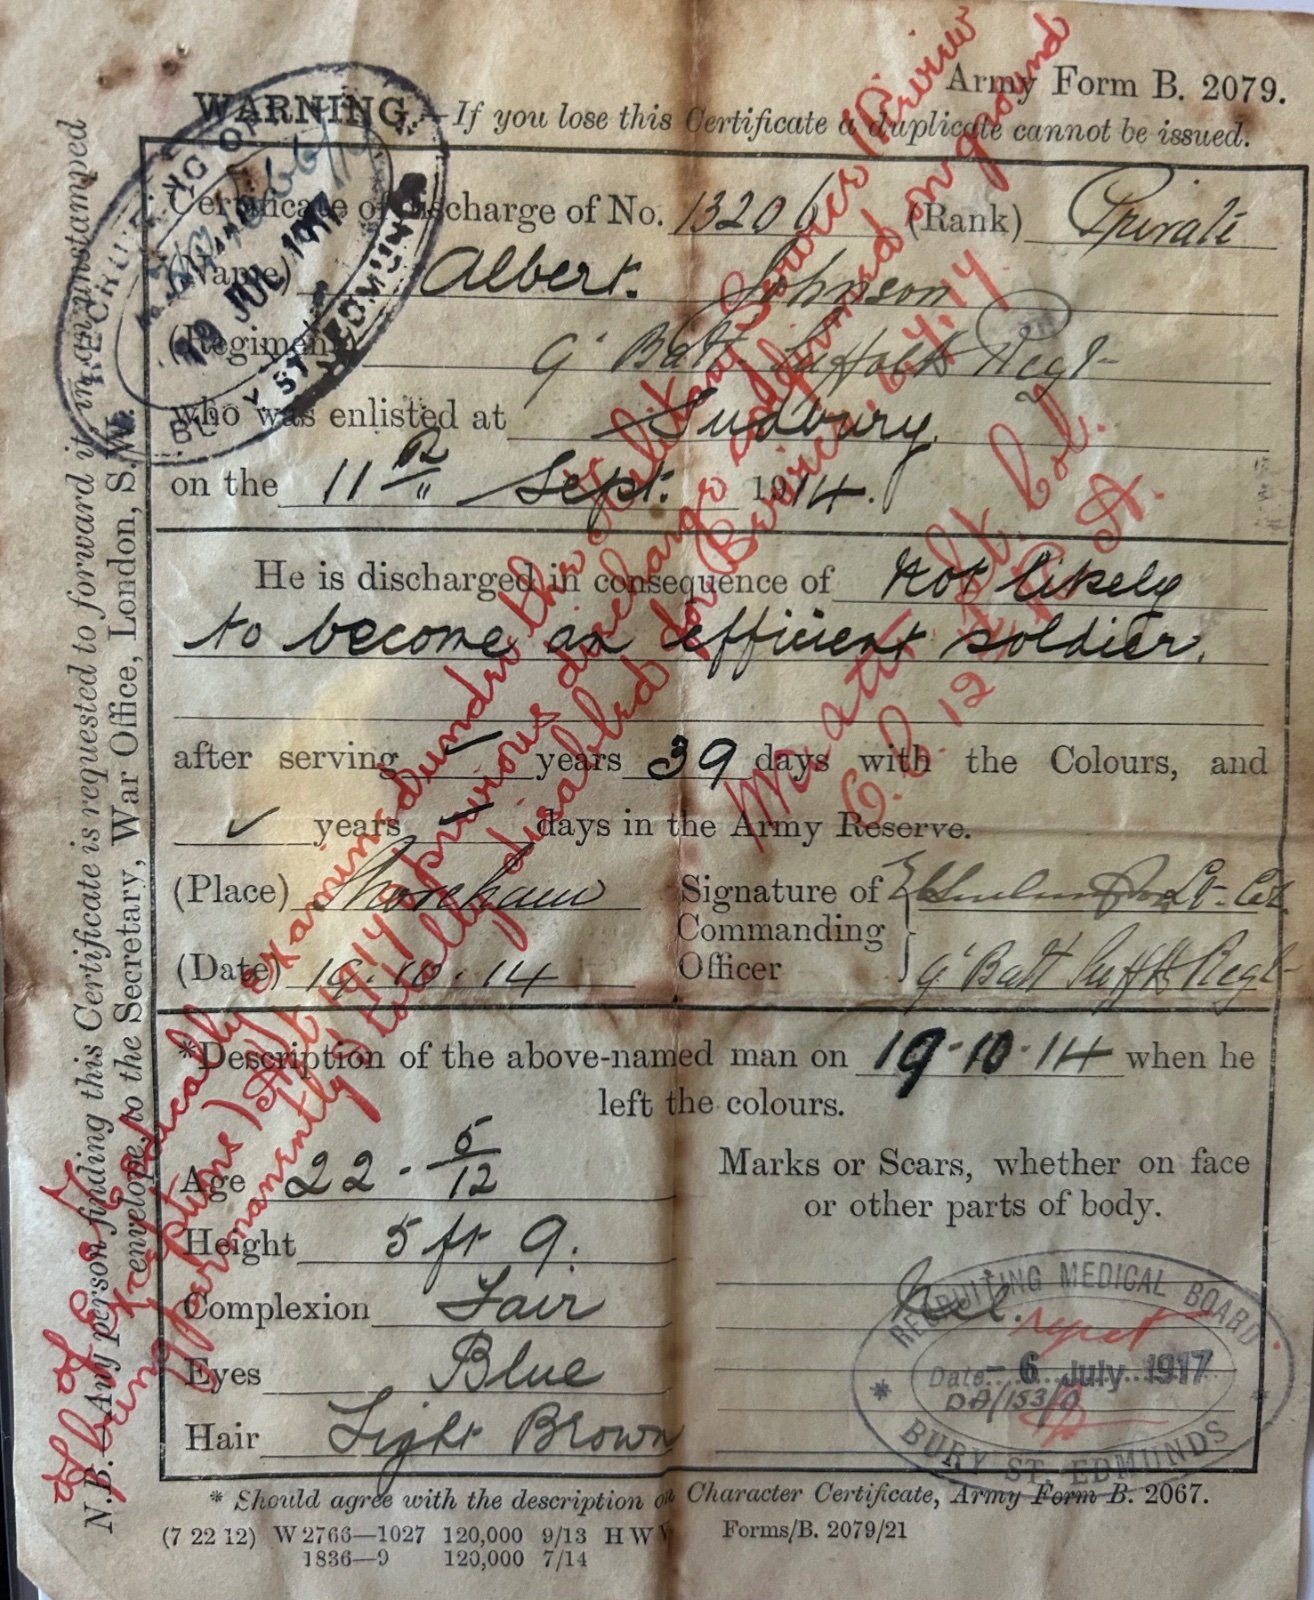 Army Form B. 2079.
WARNING.—If you lose this Certificate a duplicate cannot be issued.
Certificate of discharge of No. 13206 (Rank) Private
(Name) Albert Johnson
(Regiment) 9' Batt Suffolk Regt
who was enlisted at Sudbury.
on the 11th Sept. 1914.
He is discharged in consequence of Not likely
to become an efficient soldier.
after serving ✓ years 39 days with the Colours, and
✓ years ✓ days in the Army Reserve.
(Place) Shoreham
(Date) 19.10.14
Signature of Lt-Col.
Commanding
Officer 9' Batt Suff Regt
*Description of the above-named man on 19.10.14 when he
left the colours.
Age 22-5/12
Height 5 ft 9.
Complexion Fair
Eyes Blue
Hair Light Brown
Marks or Scars, whether on face
or other parts of body.
Nil.
* Should agree with the description on Character Certificate, Army Form B. 2067.
(7 22 12) W 2766—1027 120,000 9/13 H W V Forms/B. 2079/21
1836—9 120,000 7/14
N.B.—Any person finding this Certificate is requested to forward it in an unstamped
envelope to the Secretary, War Office, London, S.W.
Medically examined under the Military Service (Review
of Exceptions) Act 1917 previous discharge confirmed on ground
of being permanently & totally disabled for Service. 6.7.17
Lt. Col.
RECRUITING
19 JUL 1917
BURY ST. EDMUNDS
RECRUITING MEDICAL BOARD
Reject
Date - 6 July 1917
BURY ST. EDMUNDS